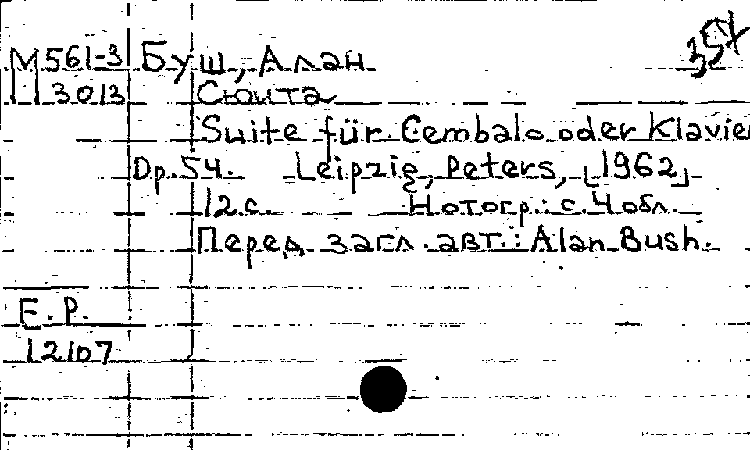 М561-3 Буш, Алан 35х
3013 Сюита
Suite für Cembalo oder Klavier
Op. 54. Leipzig, Peters, [1962]
12 с. Нотогр.: с. 4 обл.
Перед загл. авт.: Alan Bush.
E. P.
12107